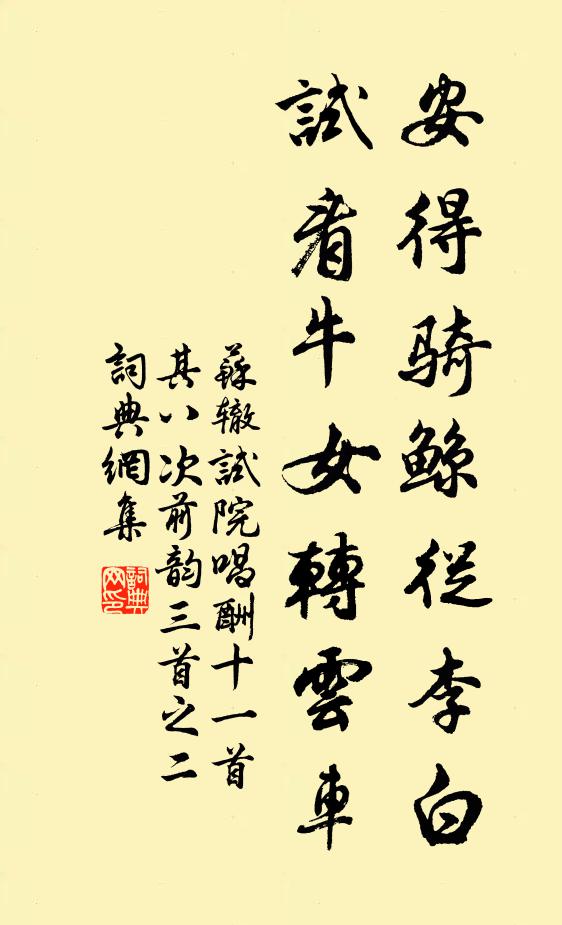 安得骑鲸從李白
試看牛女轉雲車
蘇辙試院唱酬十一首
其八次前韵三首之二
詞典網集
詞典
网印